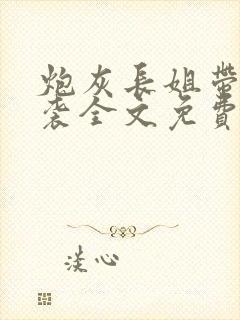 炮灰長姐帶
袭全文免費
淡心